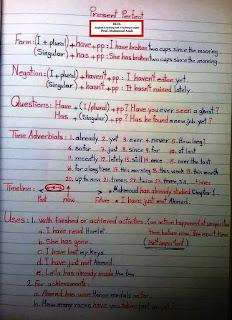 Present Perfect
Form: (I + plural) + have + pp: I have broken two cups since the morning.
(Singular) + has + pp: She has broken two cups since the morning.
Negation: (I + plural) + haven't + pp: I haven't eaten yet.
(Singular) + hasn't + pp: It hasn't rained lately.
Questions: Have + (I/plural) + pp? Have you ever seen a ghost?
Has + (Singular) + pp? Has he found a new job yet?
Time Adverbials: 1. already 2. yet 3. ever 4. never 5. How long?
6. so far 7. just 8. since 9. for 10. at last
11. recently 12. lately 13. still 14. once 15. over the last
16. for a long time 17. this morning 18. this week 19. this month
20. up to now 21. once 22. twice 23. three, six, ... times
Timeline: Mahmoud has already studied Chapter 1
Past now Future I have just met Ahmed.
Uses: 1. With finished or achieved activities. (an action happened at unspecified
a. I have read Hamlet. time before now. The exact time
b. She has gone. (not important)
c. I have lost my keys.
d. I have just met Ahmed.
e. Leila has already made the
2. For achievements:
a. Ahmed has won three medals
b. How many races have you taken part